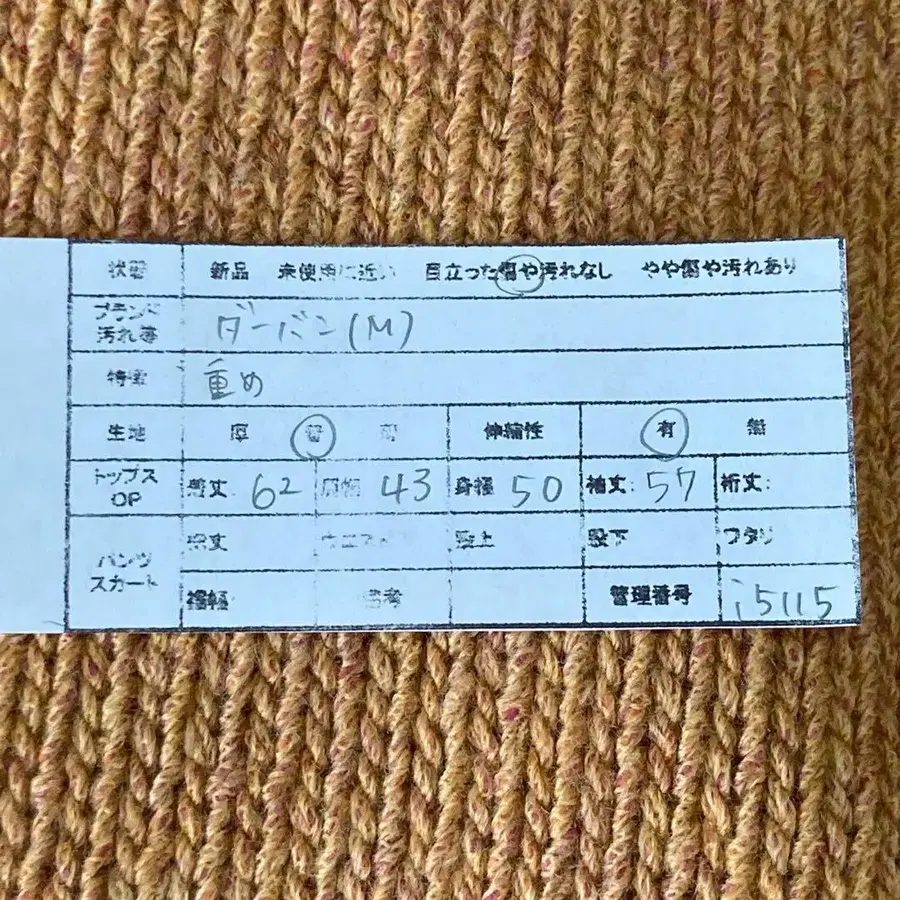 状態 新品 未使用に近い 目立った傷や汚れなし やや傷や汚れあり
ブランド 汚れ等 ダーバン(M)
特徴 重め
生地 厚 普 薄 伸縮性 有 無
トップス OP 着丈: 62 肩幅 43 身幅 50 袖丈: 57 裄丈:
パンツ スカート 総丈 ウエスト 股上 股下 ワタリ
裾幅 備考 管理番号 i5115